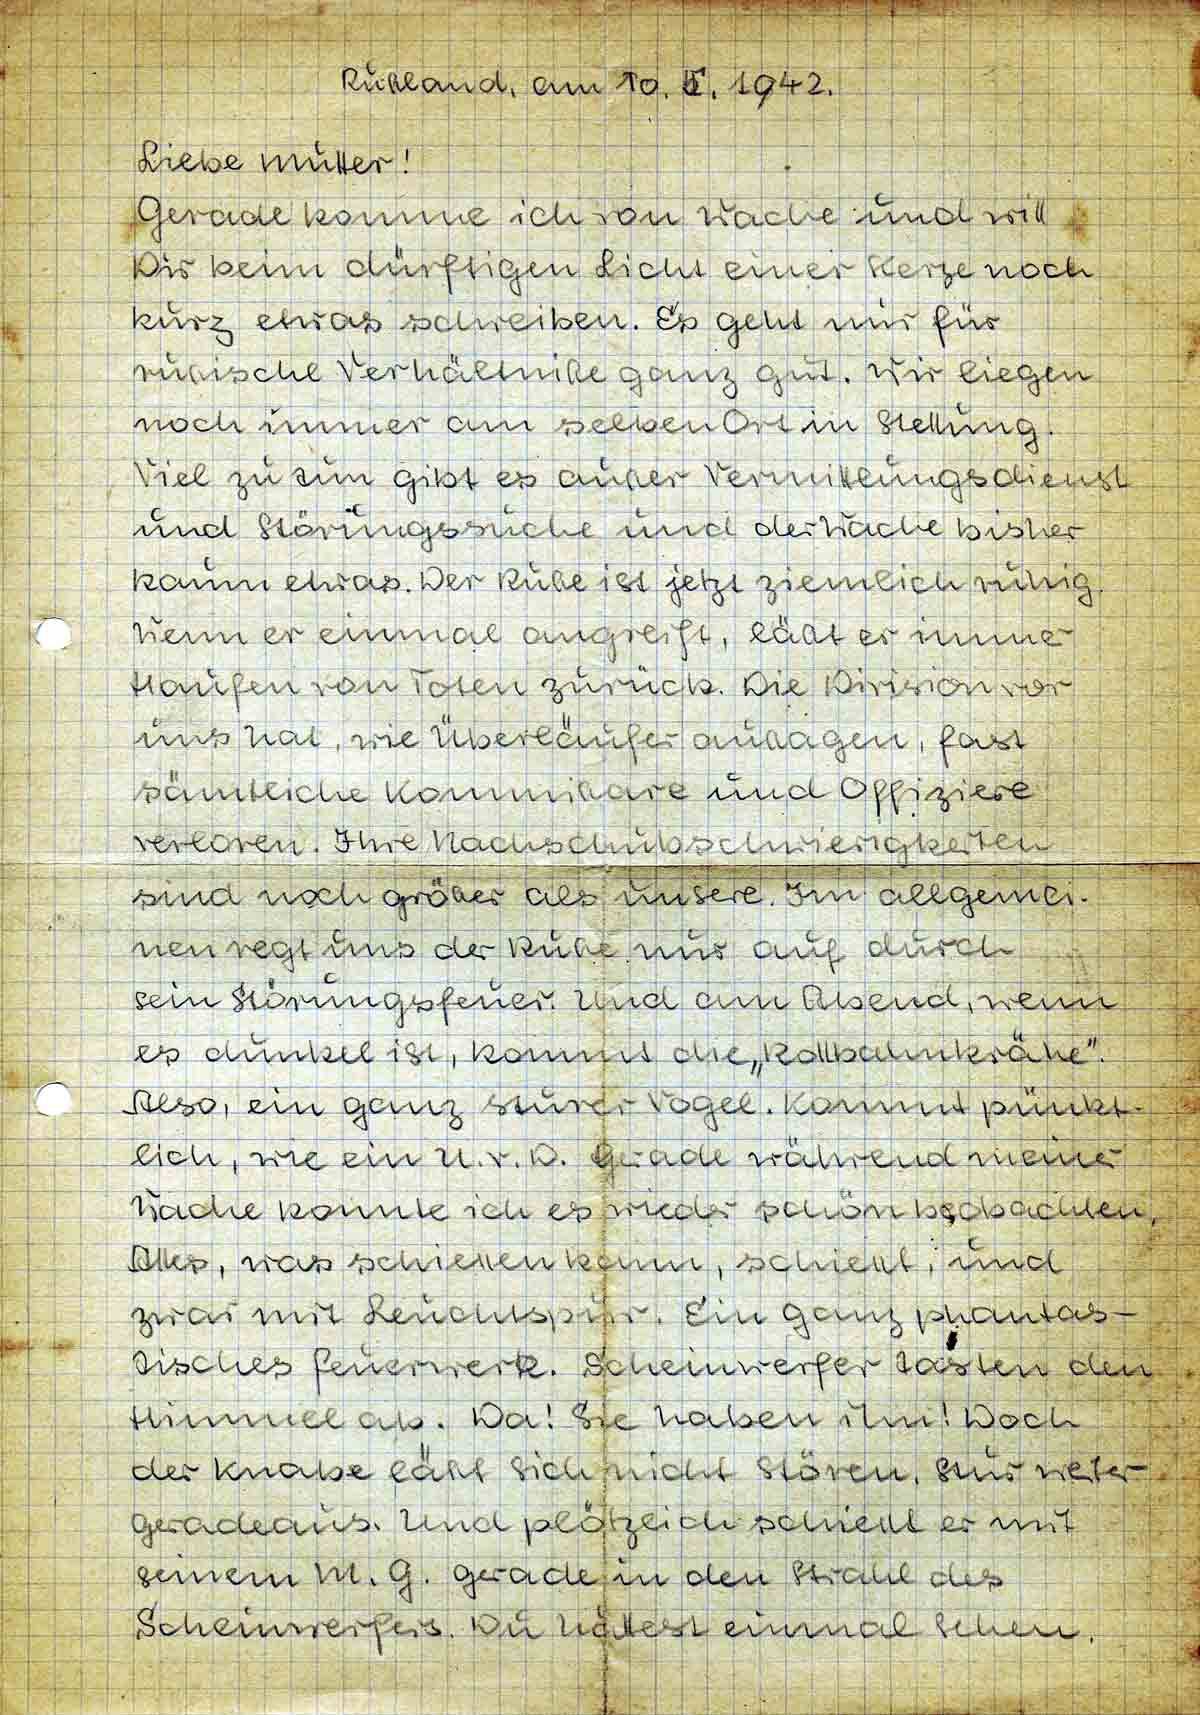 Rußland, am 10. V. 1942.
Liebe Mutter!
Gerade komme ich von Wache und will
Dir beim dürftigen Licht einer Kerze noch
kurz etwas schreiben. Es geht mir für
rußische Verhältniße ganz gut. Wir liegen
noch immer am selben Ort in Stellung.
Viel zu tun gibt es außer Vermittlungsdienst
und Störungssuche und der Wache bisher
kaum etwas. Der Ruße ist jetzt ziemlich ruhig.
Wenn er einmal angreift, läßt er imme
Haufen von Toten zurück. Die Division vor
uns hat, wie Überläufer außagen, fast
sämtliche Kommißare und Offiziere
verloren. Ihre Nachschubschwierigkeiten
sind noch größer als unsere. Im allgemei-
nen regt uns der Ruße nur auf durch
sein Störungsfeuer. Und am Abend, wenn
es dunkel ist, kommt die „Rollbahnkrähe".
Also, ein ganz sturer Vogel. Kommt pünkt-
lich, wie ein U.v.D. Gerade während meiner
Wache konnte ich es wieder schön beobachten.
Alles, was schießen kann, schießt, und
zwar mit Leuchtspur. Ein ganz phantas-
tisches Feuerwerk. Scheinwerfer tasten den
Himmel ab. Da! Sie haben ihn! Doch
der Knabe läßt sich nicht stören. Stur weiter
geradeaus. Und plötzlich schießt er mit
seinem M.G. gerade in den Strahl des
Scheinwerfers. Du hättest einmal sehen,